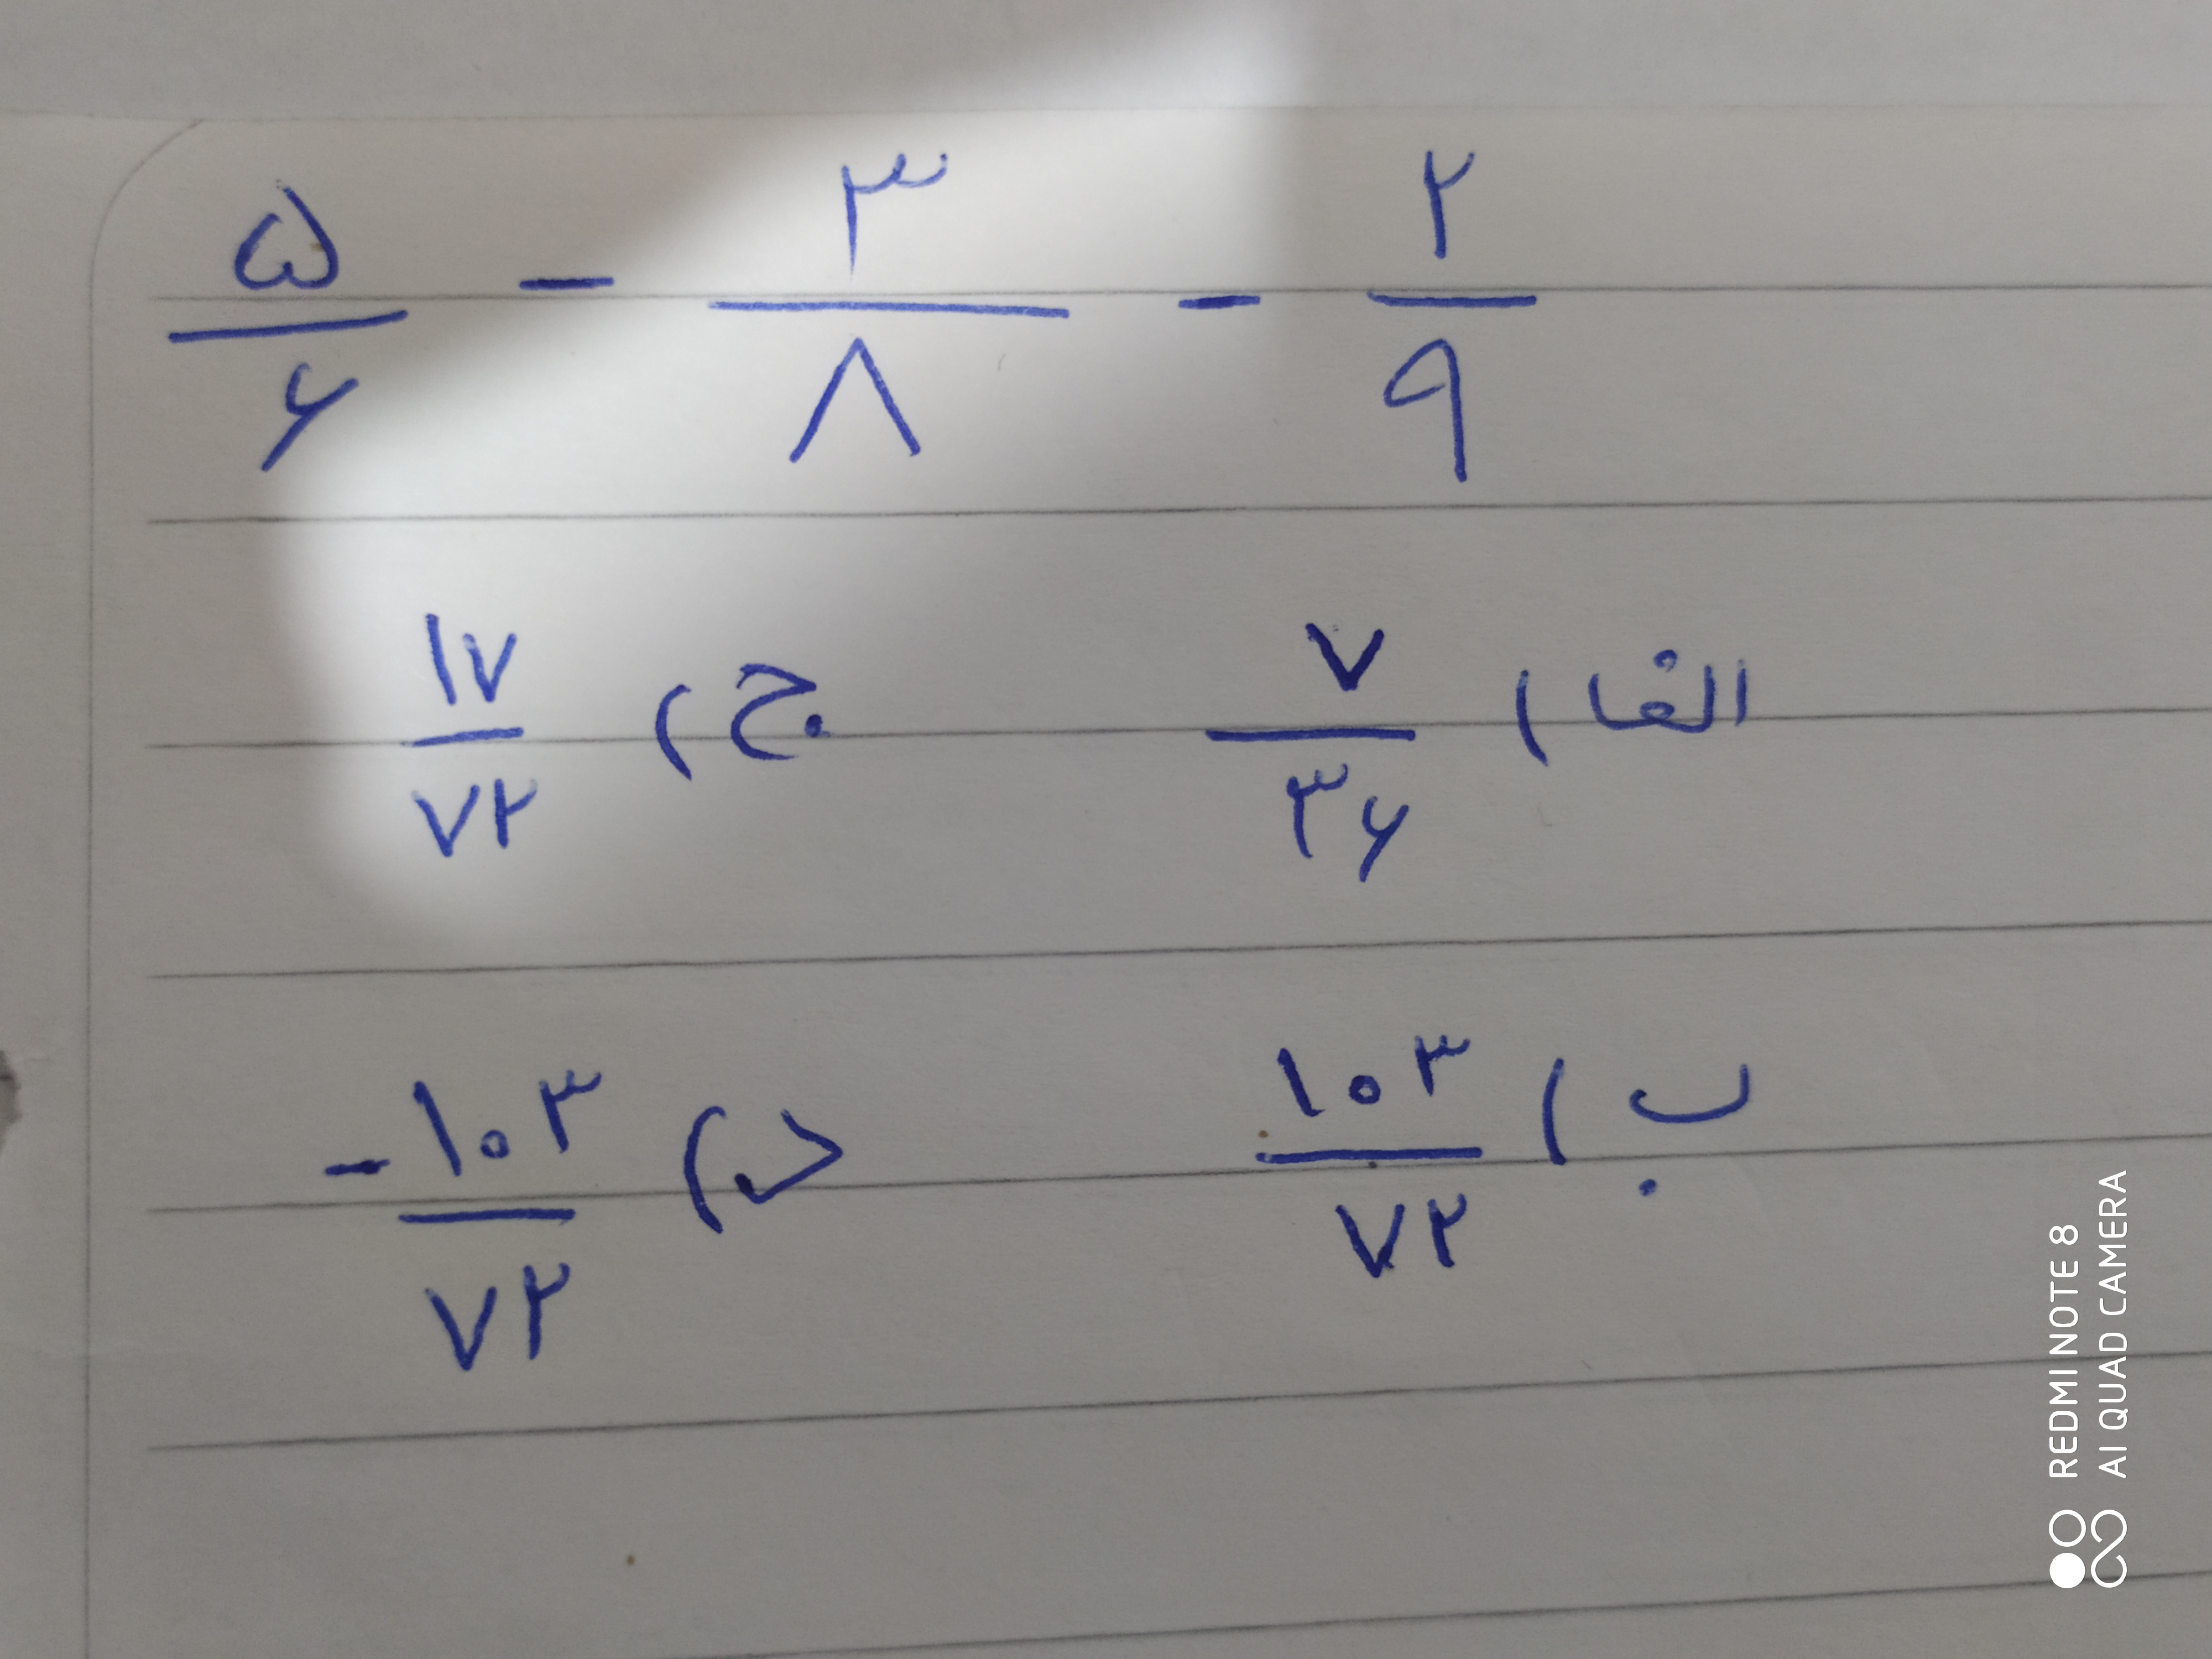 ۵/۶ - ۳/۸ - ۲/۹
الف) ۷/۳۶ ج) ۱۷/۷۲
ب) ۱۰۳/۷۲ د) -۱۰۳/۷۲
REDMI NOTE 8
AI QUAD CAMERA